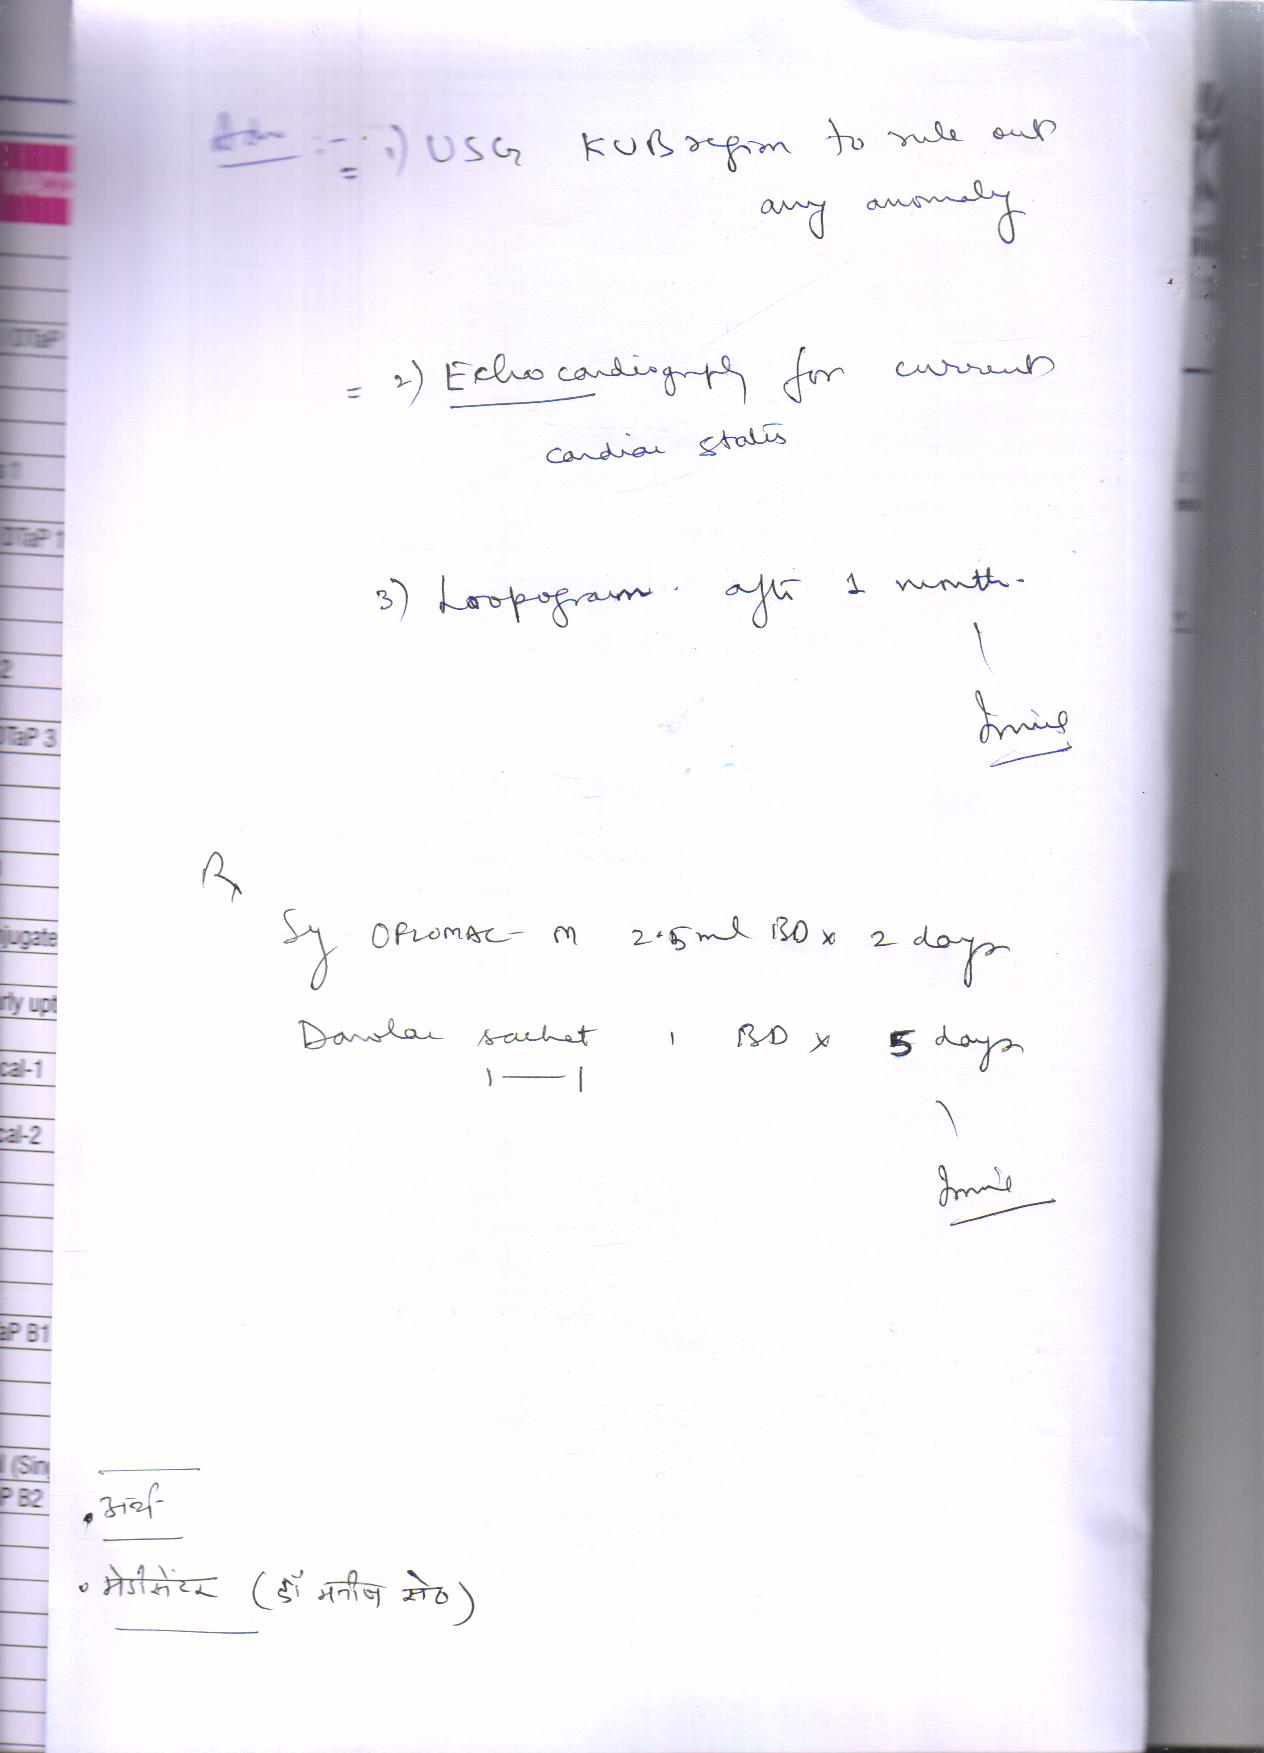 Adv :- 1) USG KUB region to rule out
any anomaly
= 2) Echocardiography for current
cardiac status
3) Loopogram. after 1 month.
Rx
Sy OPLOMAC - M 2.5 ml BD x 2 days
sachet 1 BD x 5 days
1 — 1
• अर्थ
• मेडीसेंटर (डॉ मनीज सेठ)
DTaP
s 1
DTaP 1
2
DTaP 3
njugate
cal-1
cal-2
aP B1
l (Sin
P B2